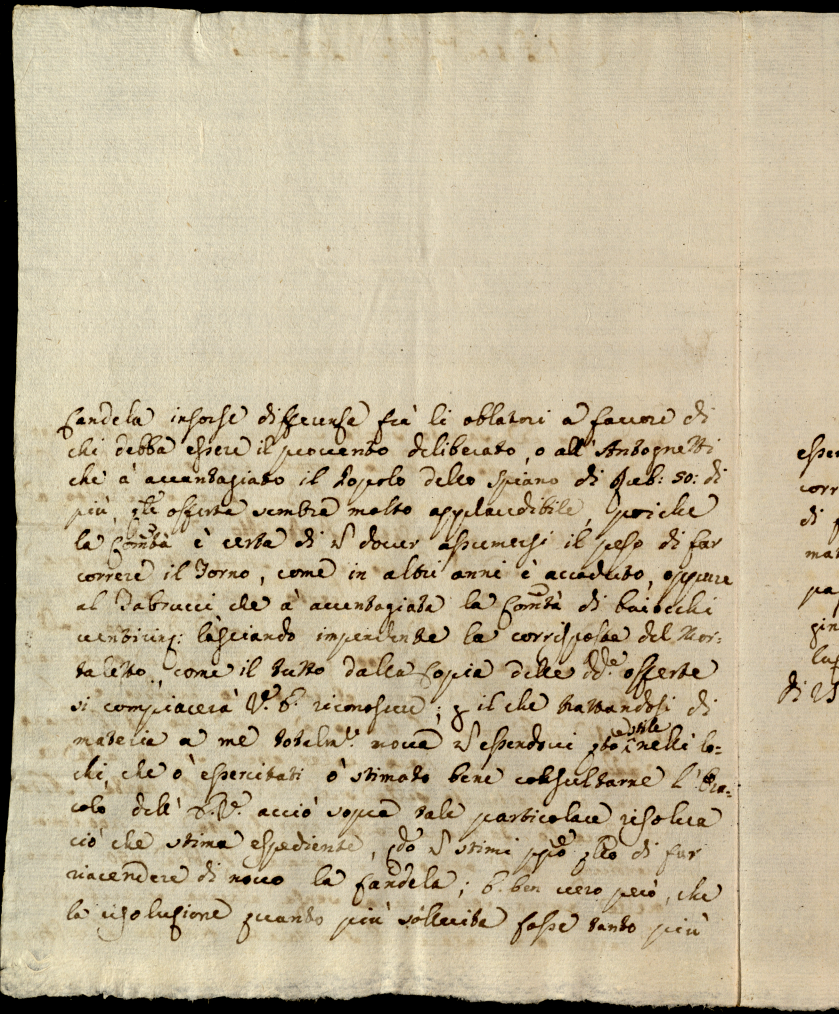 Candela insorse differenza frà li oblatori a favore di
chi debba essere il provento deliberato, o all' Antognetti
che à avantagiato il Popolo dello spiano di Qreb: 50: di
più, offerta sembra molto applaudibile, poiche
la Com̃tà è certa di dover assumersi il peso di far
correre il Forno, come in altri anni è accaduto, oppure
al Fabrucci che à avantagiata la Com̃tà di baiocchi
venticinq: lasciando impendente la corrisposta del Mor:
taletto, come il tutto dalla Copia delle dd.e offerte
si compiacerà V.S. riconoscere; p il che trattandosi di
materia a me totalm.e nova essendoci stile nelli lo:
chi, che ò essercitati ò stimato bene consultarne l'Ora:
colo dell' acciò sopra tale particolare risolva
ciò che stima espediente, stimi di far
riacendere di novo la Candela; è ben vero però, che
la risoluzione quanto più sollecita fosse tanto più
esser
corr
di
mat
pa
gin
lus
di 25